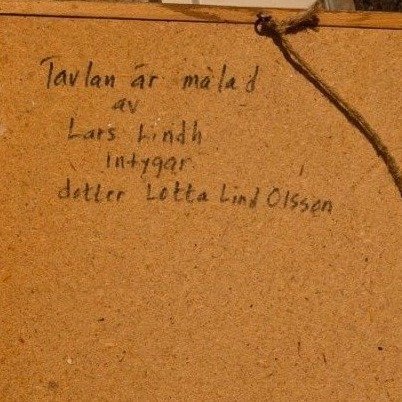 Tavlan är målad
av
Lars Lindh
intygar
dotter Lotta Lind Olsson